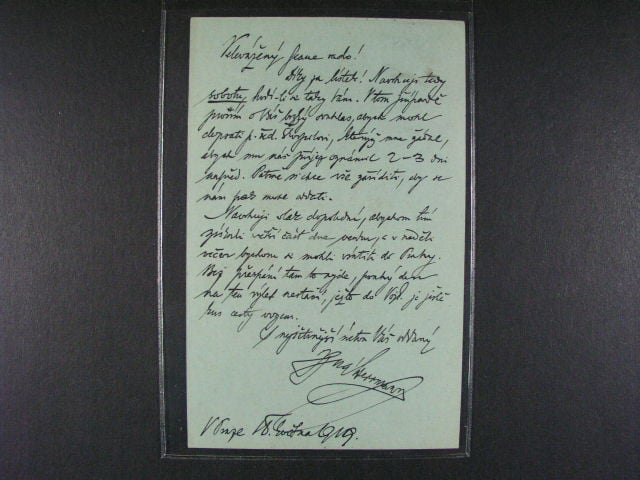 Velevážený pane rado!
Díky za lístek! Navrhuji tedy
sobotu, hodí-li se tedy Vám. V tom případě
prosím o Váš souhlas, abych mohl
dopsati p. řed. který mne žádal,
abych mu náš příjezd oznámil 2–3 dni
napřed. Patrně si chce vše zaříditi, aby se
nám pak mohl oddati.
Navrhuji vlak dopolední, abychom tím
získali větší část dne venku, a v neděli
večer bychom se mohli vrátiti do Prahy.
Bez přespání tam to nejde, pouhý den
na ten výlet nestačí, ježto do je ještě
kus cesty vozem.
S nejsrdečnější úctou Váš oddaný
Ignát Herrmann
V Praze 18. května 1909.